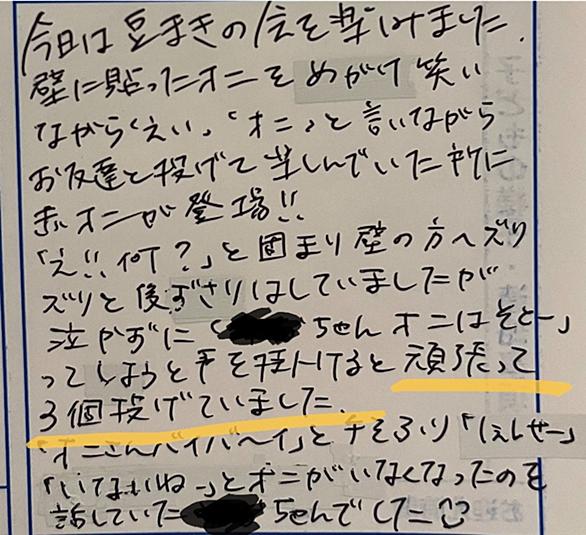 今日は豆まきの会を楽しみました.
壁に貼ったオニをめがけ笑い
ながら「えい、「オニ」と言いながら
お友達と投げて楽しんでいた所に
赤オニが登場!!
「え!!何?」と固まり壁の方へズリ
ズリと後ずさりはしていましたが
泣かずに「ちゃん オニはそとー」
ってしようと声を掛けると頑張って
3個投げていました.
「オニさんバイバーイ」と手をふり「しぇしぇー」
「いてないねー」とオニがいなくなったのを
話していたちゃんでした